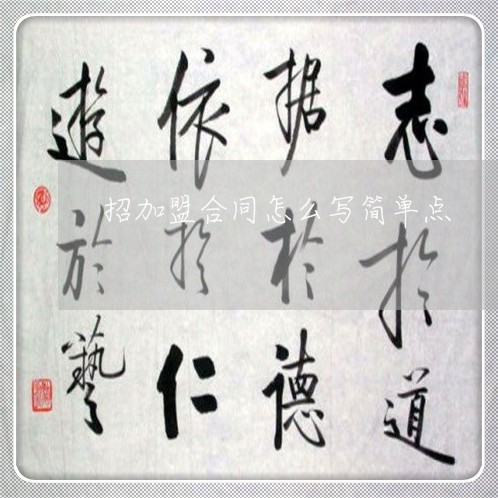 志於道
据於德
依於仁
遊於藝
招加盟合同怎么写简单点